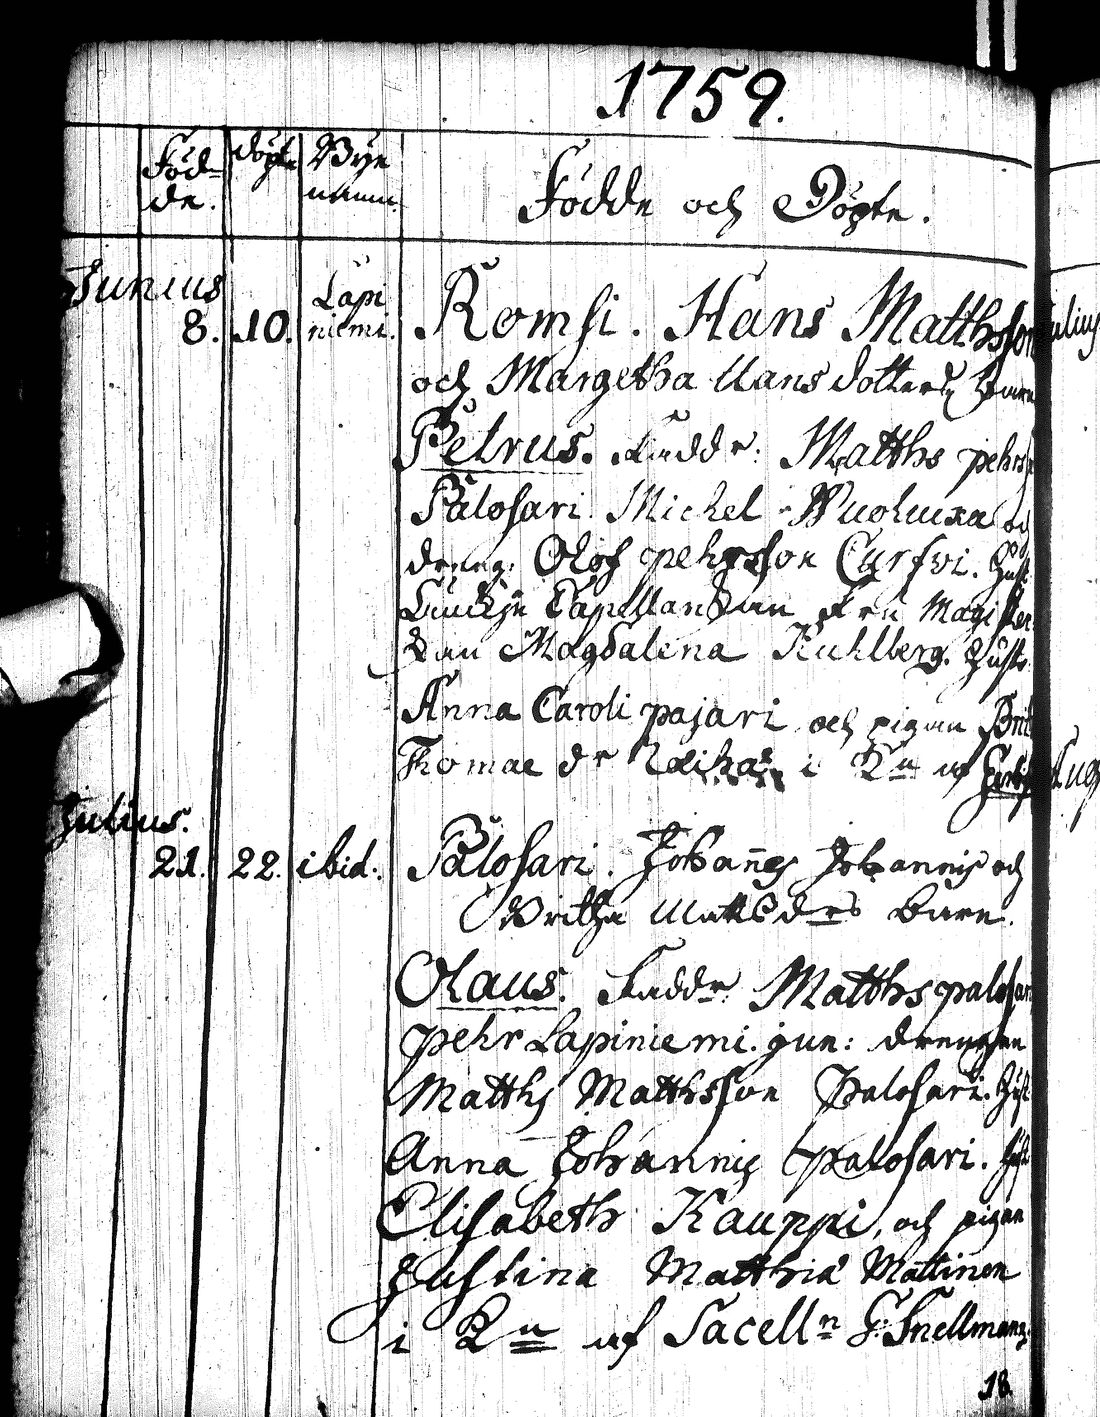 1759.
Föd=
de.
döpte
Bye
namn.
Födde och Döpte.
Junius
8. 10. Lapi
niemi.
Romsi. Hans Matthsson
och Margetha Hans dotters barn
Petrus. Faddr: Matths pehrs
Palosari. Michel
dreng: Olof pehrsson Curfvi. Hust
Capellanskan Fru Magister
skan Magdalena Kuhlberg. Hustr.
Anna Caroli pajari och pigan Brit
Thomae dr i Kn af
Julius.
21. 22. ibid:
Palosari. Johannes Johannis och
Britha Matts drs barn.
Olaus. Faddr. Matths palosari
pehr Lapiniemi. jun: drengen
Matths Matthsson Palosari. Hust
Anna Johannis palosari. Hust
Elisabeth Kauppi, och pigan
Justina Matthiæ Mattinen
i Kn af Sacelln G: Snellman
18.